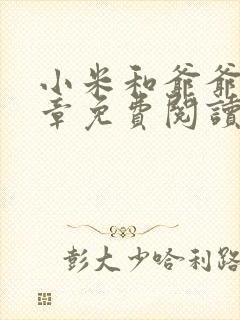 小米和爺爺
章免費閱讀
彭大少哈利路